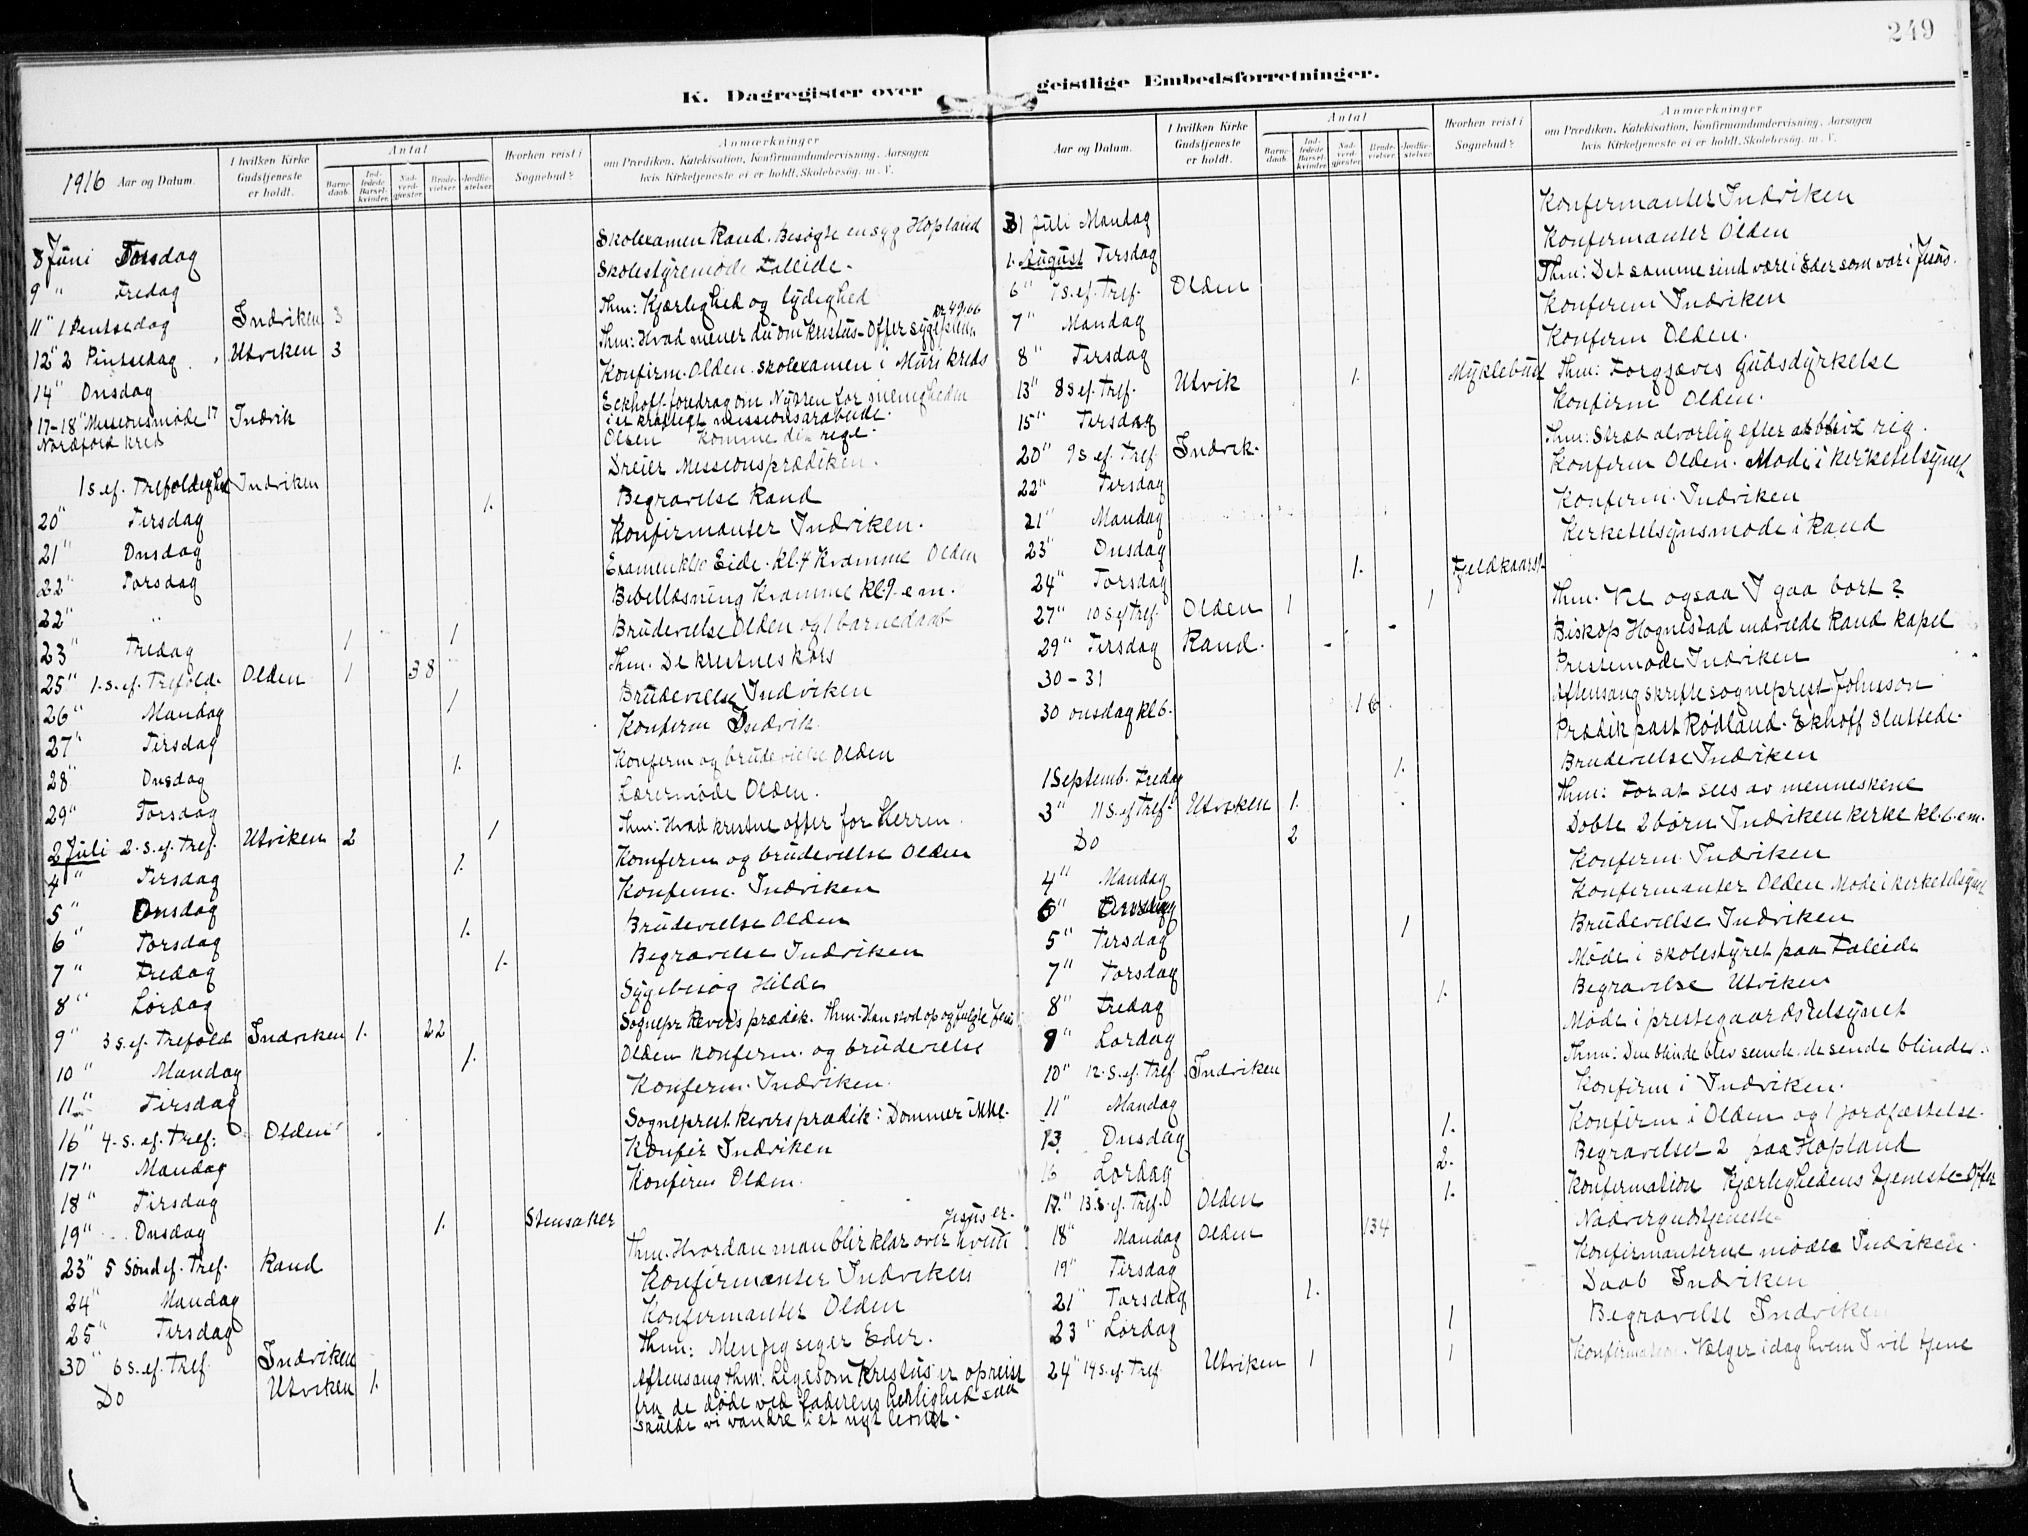 249
K. Dagregister over
1916 Aar og Datum.
I hvilken Kirke Gudstjeneste er holdt.
Antal
Barnedaab.
Indledede Barselkvinder.
Nadverdgjester.
Brudevielser.
Jordfæstelser.
Hvorhen reist i Sognebud?
Anmærkninger
om Prædiken, Katekisation, Konfirmandundervisning, Aarsagen
hvis Kirketjeneste ei er holdt, Skolebesøg. m. V.
8 Juni Torsdag Skolexamen Rand. Besøgte en syg Hopland
9 " Fredag Skolestyremøde Faleide.
11 " 1 Pintsedag Indviken 3 Thm: Kjærlighed og lydighed
12 " 2 Pintsedag Utviken 3 Thm: Hvad mener du om Kristus - Offer kr 49,66
14 " Onsdag Konfirm. Olden. skolexamen i Muri kreds
17-18 " Missionsmøde 17 Indvik Eckhoff foredrag om for menigheden
Nordfjord kred i et kraftigt missionsarbeide.
Olsen komme dit rige.
1 s. ef. Trefoldighet Indviken Dreier Missionsprædiken.
20 " Tirsdag 1. Begravelse Rand
21 " Onsdag Konfirmanter Indviken.
22 " Torsdag Examen Eide. kl. 4 Kvamme Olden
22 " " Bibellæsning Kvamme kl. 9 e m.
23 " Fredag 1 1 Brudevielse Olden og 1 barnedaab
25 " 1. s. ef. Trefold. Olden 1 38 Thm. De kristnes kors
26 " Mandag 1 Brudevielse Indviken
27 " Tirsdag Konfirm Indvik.
28 " Onsdag 1. Konfirm og brudevielse Olden
29 " Torsdag Lærermøde Olden.
2 Juli 2. s. ef. Tref. Utviken 2 1 Thm: Hvad kristne offer for Herren.
4 " Tirsdag 1. Konfirm og brudevielse Olden
5 " Onsdag Konfirm. Indviken
6 " Torsdag 1. Brudevielse Olden
7 " Fredag 1. Begravelse Indviken
8 " Lørdag Sygebesøg Hilde
9 " 3 s. ef. Trefold Indviken 1. 22 Sognepr prædik. Thm. Han stod op og fulgte Jesus
10 " Mandag 1. Olden konfirm. og brudevielse
11 " Tirsdag Konfirm. Indviken.
16 " 4. s. ef. Tref: Olden Sogneprest prædik: Dommer ikke.
17 " Mandag Konfir Indviken
18 " Tirsdag Konfirm Olden.
19 " Onsdag 1. Stensaker
23 " 5 Sønd ef. Tref. Rand Thm. Hvordan man blir klar over hvem Jesus er.
24 " Mandag Konfirmanter Indviken
25 " Tirsdag Konfirmanter Olden
30 " 6 s. ef. Tref Indviken Thm: Men jeg siger Eder.
Do Utviken 1. Aftensang thm: Ligesom Kristus er opreist
fra de døde ved faderens herlighed saa
skulde vi vandre i et nyt levnet.
geistlige Embedsforretninger.
Aar og Datum.
I hvilken Kirke Gudstjeneste er holdt.
Antal
Barnedaab.
Indledede Barselkvinder.
Nadverdgjester.
Brudevielser.
Jordfæstelser.
Hvorhen reist i Sognebud?
Anmærkninger
om Prædiken, Katekisation, Konfirmandundervisning, Aarsagen
hvis Kirketjeneste ei er holdt, Skolebesøg. m. V.
31 Juli Mandag Konfirmanter Indviken
1. August Tirsdag Konfirmanter Olden
6 " 7 s. ef. Tref. Olden Thm: Det samme sind være i Eder som var i Jesus.
7 " Mandag Konfirm Indviken
8 " Tirsdag Konfirm Olden.
13 " 8 s ef. Tref. Utvik 1. Myklebust Thm: Forgjæves Gudsdyrkelse
15 " Tirsdag Konfirm Olden.
20 " 9 s. ef. Tref Indvik. Thm: Stræb alvorlig efter at blive rig.
22 " Tirsdag Konfirm Olden. Møde i kirketilsynet
21 " Mandag Konfirm. Indviken
23 " Onsdag Kirketilsynsmøde i Rand
24 " Torsdag 1.
27 " 10 s ef Tref. Olden 1 1 Thm. Vil ogsaa I gaa bort?
29 " Tirsdag Rand. Biskop Hognestad indviede Rand kapel
30-31 Prestemøde Indviken
30 onsdag kl 6. 16 Aftensang skrifte sogneprest Johnson
Prædik past Rødland. Ekhoff sluttede.
1 Septemb. Fredag 1. Brudevielse Indviken
3 " 11 s. ef Tref. Utviken 1. Thm: For at sees av menneskene
Do 2 Døbte 2 børn Indviken kirke kl. 6. e m.
4 " Mandag Konfirm Indviken
6 " Onsdag Konfirmanter Olden Møde i kirketilsynet
5 " Tirsdag 1 Brudevielse Indviken
7 " Torsdag Møde i skolestyret paa Faleide
8 " Fredag 1. Begravelse Utviken
9 " Lørdag Møde i prestegaardstilsynet
10 " 12. s. ef. Tref Indviken Thm: Den blinde blev seende. de seende blinde.
11 " Mandag Konfirm i Indviken.
13 Onsdag 1. Konfirm i Olden og 1 jordfæstelse.
16 Lørdag 2. Begravelse 2 paa Hopland
17. " 13. s. ef. Tref. Olden 1. Konfirmation Kjærlighedens tjeneste - Offer
18 " Mandag Olden 134 Nadvergudstjeneste
19 " Tirsdag Konfirmanterne møde Indviken.
21 " Torsdag 1. Daab Indviken
23 " Lørdag 1 Begravelse Indviken
24 " 14 s. ef. Tref Utviken 1 1 Konfirmation. Vælger i dag hvem I vil tjene